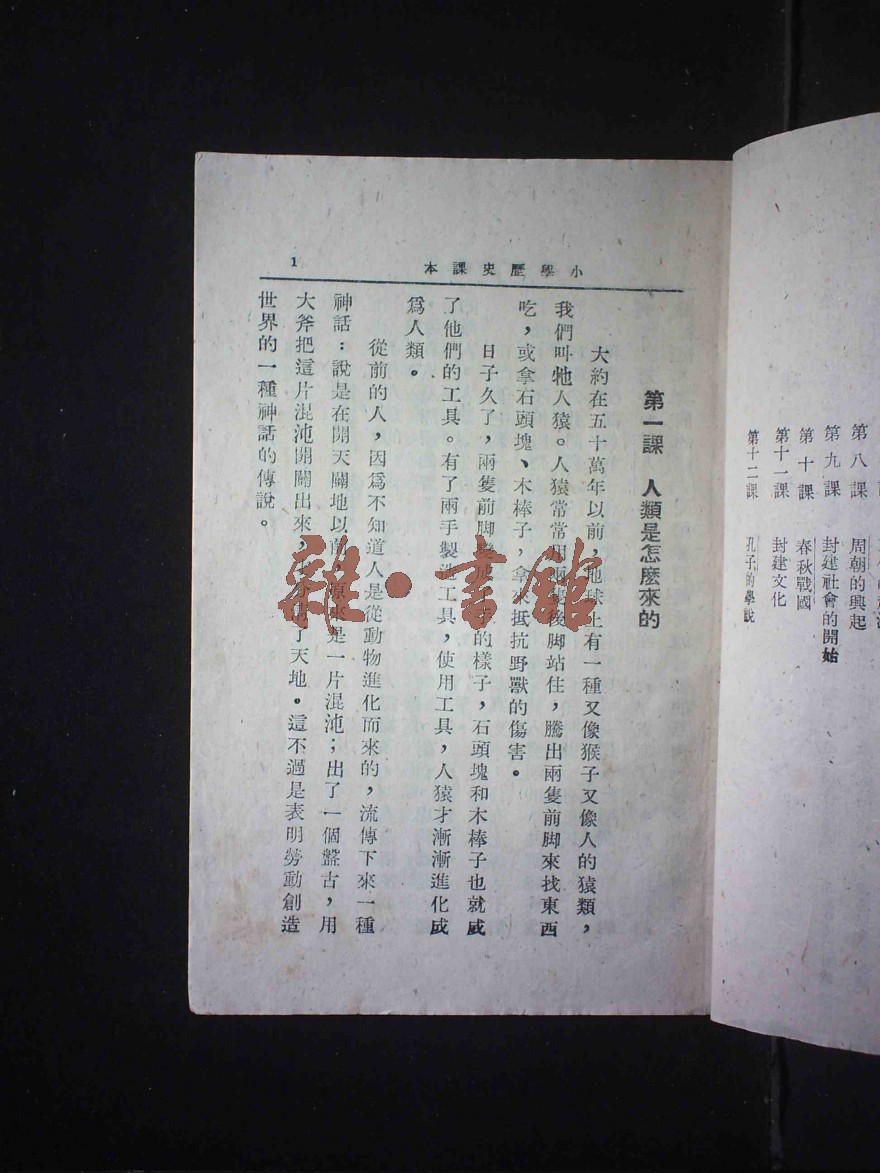 第八課　周朝的興起
第九課　封建社會的開始
第十課　春秋戰國
第十一課　封建文化
第十二課　孔子的學說
小學歷史課本
1
第一課　人類是怎麽來的
大約在五十萬年以前，地球上有一種又像猴子又像人的猿類，
我們叫牠人猿。人猿常常用兩隻後脚站住，騰出兩隻前脚來找東西
吃，或拿石頭塊、木棒子，拿來抵抗野獸的傷害。
日子久了，兩隻前脚變成了手的樣子，石頭塊和木棒子也就成
了他們的工具。有了兩手製造工具，使用工具，人猿才漸漸進化成
爲人類。
從前的人，因爲不知道人是從動物進化而來的，流傳下來一種
神話：說是在開天闢地以前，原來是一片混沌；出了一個盤古，用
大斧把這片混沌開闢出來，才分開了天地。這不過是表明勞動創造
世界的一種神話的傳說。
雜·書館